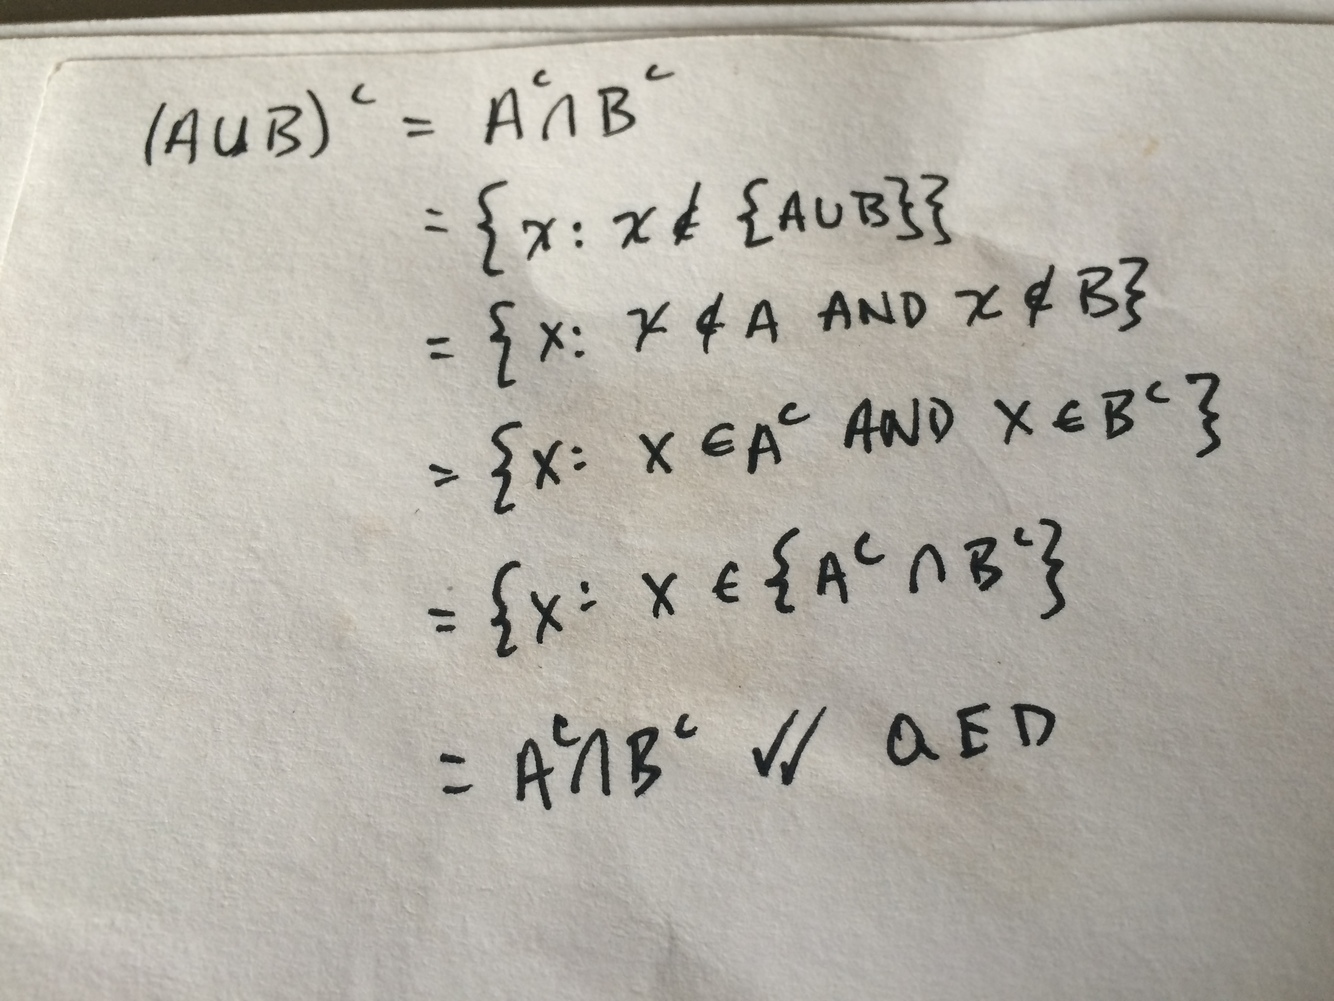 (A∪B)ᶜ = Aᶜ∩Bᶜ
= {x: x∉ {A∪B}}
= {x: x∉A AND x∉B}
= {x: x∈Aᶜ AND x∈Bᶜ}
= {x: x∈{Aᶜ∩Bᶜ}
= Aᶜ∩Bᶜ ✓✓ QED